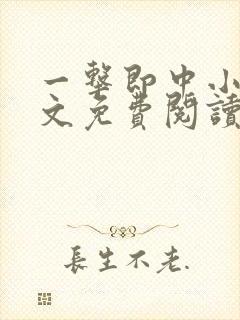 一擊即中小
文免費閱讀
長生不老.